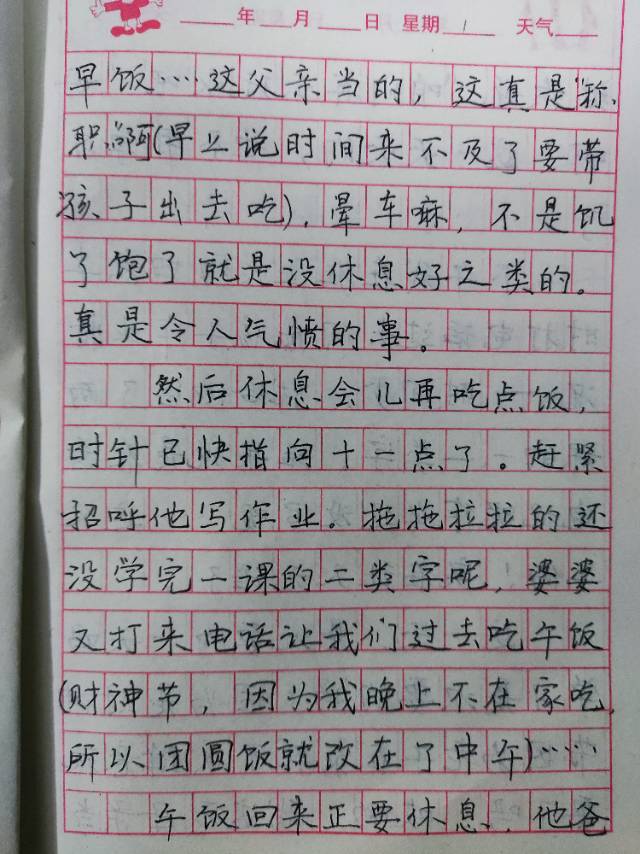 ____年____月____日 星期____ 天气____
早饭……这父亲当的，这真是“称
职”啊(早上说时间来不及了要带
孩子出去吃)，晕车嘛，不是饥
了饱了就是没休息好之类的。
真是令人气愤的事。
然后休息会儿再吃点饭，
时针已快指向十一点了。赶紧
招呼他写作业。拖拖拉拉的还
没学完一课的二类字呢，婆婆
又打来电话让我们过去吃午饭
(财神节，因为我晚上不在家吃，
所以团圆饭就改在了中午)……
午饭回来正要休息，他爸